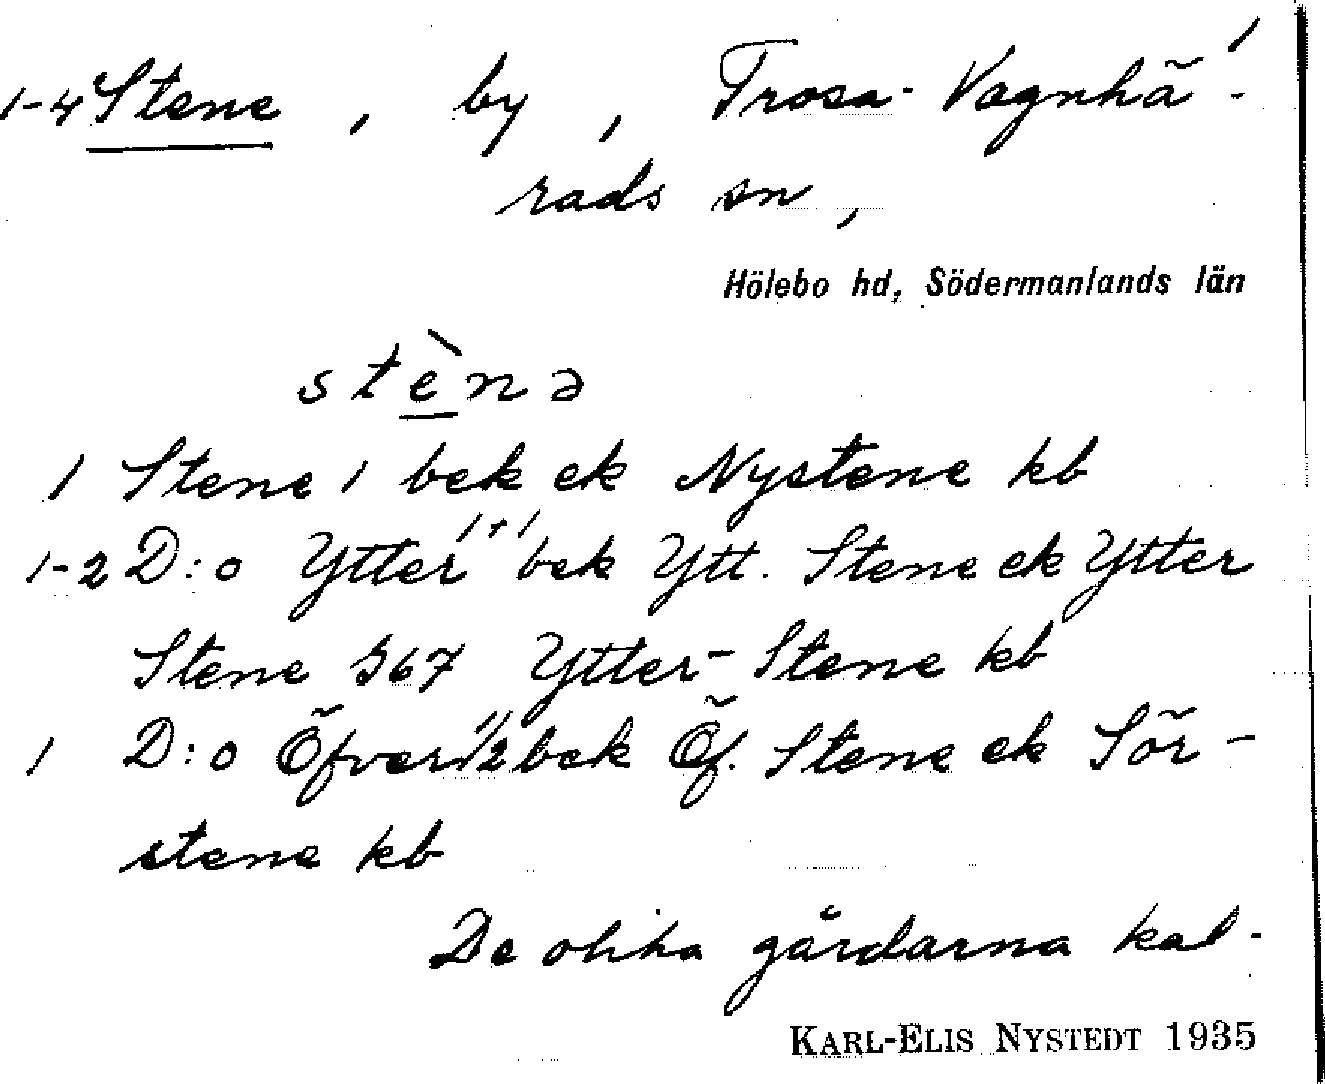 1
1-4 Stene, by, Trosa-Vagnhä-
rads sn,
Hölebo hd, Södermanlands län
stènə
1 Stene 1 bek ek Nystene kb
1-2 D:o Ytter 1+1 bek Ytt. Stene ek Ytter
Stene J67 Ytter-Stene kb
1 D:o Öfver 1 1/2 bek Öf. Stene ek Sör-
stene kb
De olika gårdarna kal-
KARL-ELIS NYSTEDT 1935